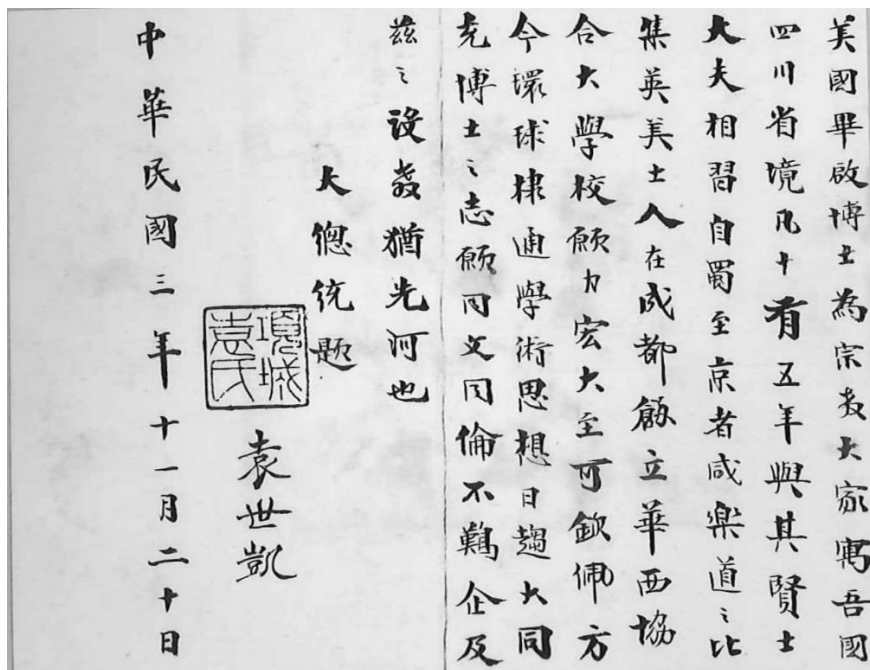 美國畢啟博士為宗教大家寓吾國
四川省境凡十有五年與其賢士
大夫相習自蜀至京者咸樂道之比
集英美士人在成都創立華西協
合大學校願力宏大至可欽佩方
今環球棣通學術思想日趨大同
充博士之志願同文同倫不難企及
茲之設教猶先河也
大總統題
項城袁氏
袁世凱
中華民國三年十一月二十日